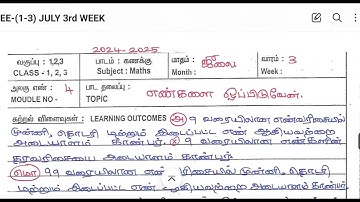 EE-(1-3) JULY 3rd WEEK
2024-2025
வகுப்பு : 1,2,3 பாடம் : கணக்கு மாதம் : ஜீலை வாரம் : 3
CLASS - 1, 2, 3 Subject : Maths Month : Week :
அலகு எண் : 4 பாட தலைப்பு : எண்களை ஒப்பிடுவேன்.
MOUDLE NO - TOPIC
கற்றல் விளைவுகள் : LEARNING OUTCOMES அ 9 வரையிலான எண்வரிசையில்
முன்னி, தொடரி மற்றும் இடைப்பட்ட எண் ஆகியவற்றை
அடையாளம் காண்பர். 9 வரையிலான எண்களின்
தரவரிசையை அடையாளம் காண்பர்
மொ 99 வரையிலான எண் வரிசையில் முன்னி, தொடரி
மற்றும் இடைப்பட்ட எண் ஆகியவற்றை அடையாளம் காண்பர்.